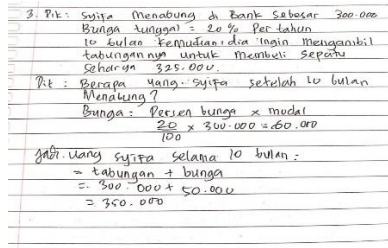 3. Dik : Syifa Menabung di Bank Sebesar 300.000
Bunga tunggal = 20% Per tahun
10 bulan Kemudian, dia ingin mengambil
tabungannya untuk membeli sepatu
Seharga 325.000.
Dit : Berapa uang Syifa setelah 10 bulan
Menabung ?
Bunga : Persen bunga x modal
20/100 x 300.000 = 60.000
Jadi. Uang Syifa selama 10 bulan :
= tabungan + bunga
= 300.000 + 50.000
= 350.000